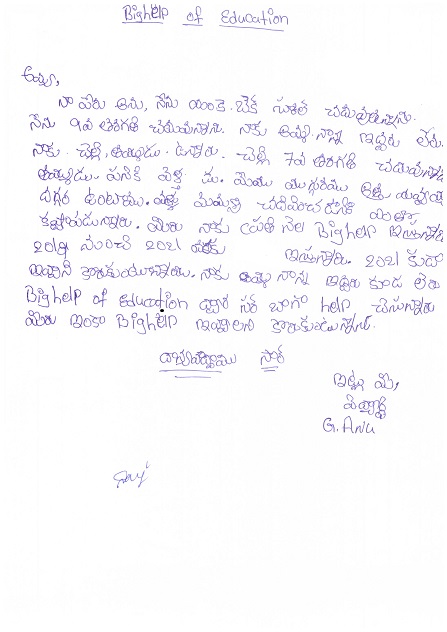 Bighelp of Education
అయ్యా,
నా పేరు అను, నేను యం.కె. బెక్ స్కూల్ చదువుతున్నాను.
నేను 9వ తరగతి చదువున్నాను. నాకు అమ్మ నాన్న ఇద్దరు లేరు.
నాకు చెల్లి, తమ్ముడు ఉన్నారు. చెల్లి 7వ తరగతి చదువున్నది
తమ్ముడు పనికి మేము ముగ్గురము
దగ్గర ఉంటాము. మమ్మల్ని చదివించడానికి
కష్టపడుతున్నారు. మీరు నాకు ప్రతి నెల Bighelp ఇస్తున్నారు
2019 నుంచి 2021 వరకు ఇస్తున్నారు. 2021 కుడా
ఇవ్వాలని కోరుకుంటున్నాము. నాకు అమ్మ నాన్న ఇద్దరు కుడ లేరు
Bighelp of Education ద్వారా సర్ బాగా help చేస్తున్నారు
మీరు ఇంకా Bighelp ఇవ్వాలని కోరుకుంటున్నాను.
సార్
ఇట్లు మీ,
విద్యార్థి
G. Anu